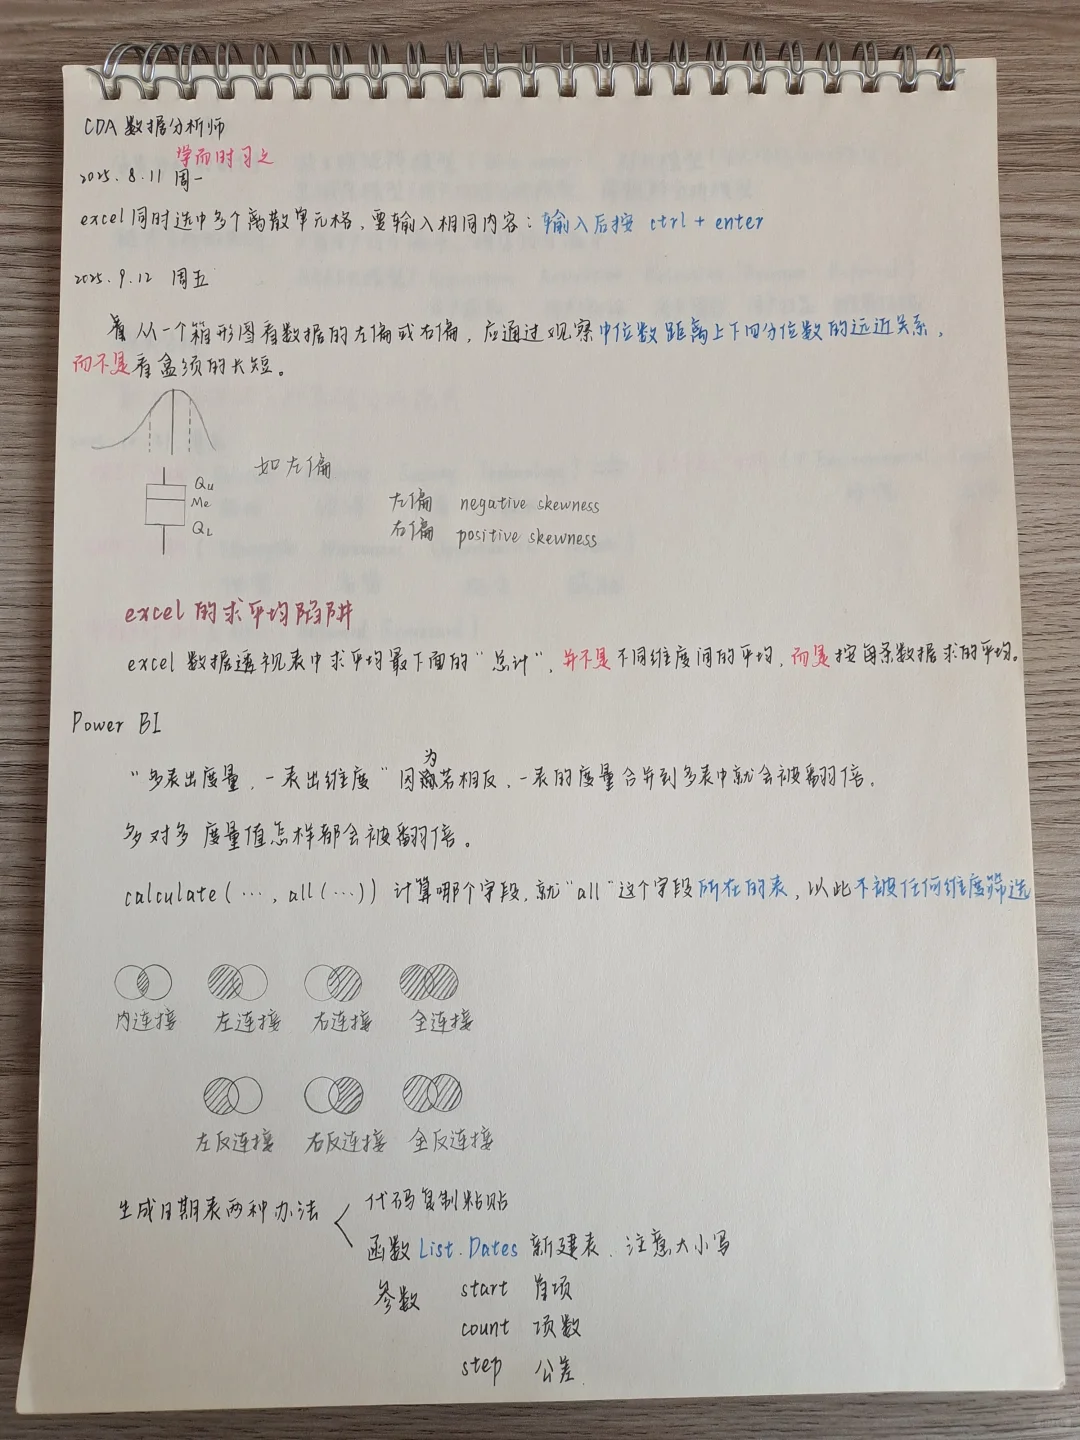 CDA 数据分析师
学而时习之
2025.8.11 周一
excel同时选中多个离散单元格，要输入相同内容：输入后按 ctrl + enter
2025.9.12 周五
从一个箱形图看数据的左偏或右偏，应通过观察中位数距离上下四分位数的远近关系，
而不是看盒须的长短。
如左偏
Qu
Me
QL
左偏 negative skewness
右偏 positive skewness
excel的求平均陷阱
excel 数据透视表中求平均最下面的“总计”，并不是不同维度间的平均，而是按每条数据求的平均。
Power BI
“多表出度量，一表出维度”因为若相反，一表的度量合并到多表中就会被翻倍。
多对多 度量值怎样都会被翻倍。
calculate(…, all(…)) 计算哪个字段，就“all”这个字段所在的表，以此不被任何维度筛选
内连接 左连接 右连接 全连接
左反连接 右反连接 全反连接
生成日期表两种办法
代码复制粘贴
函数 List.Dates 新建表，注意大小写
参数 start 首项
count 项数
step 公差